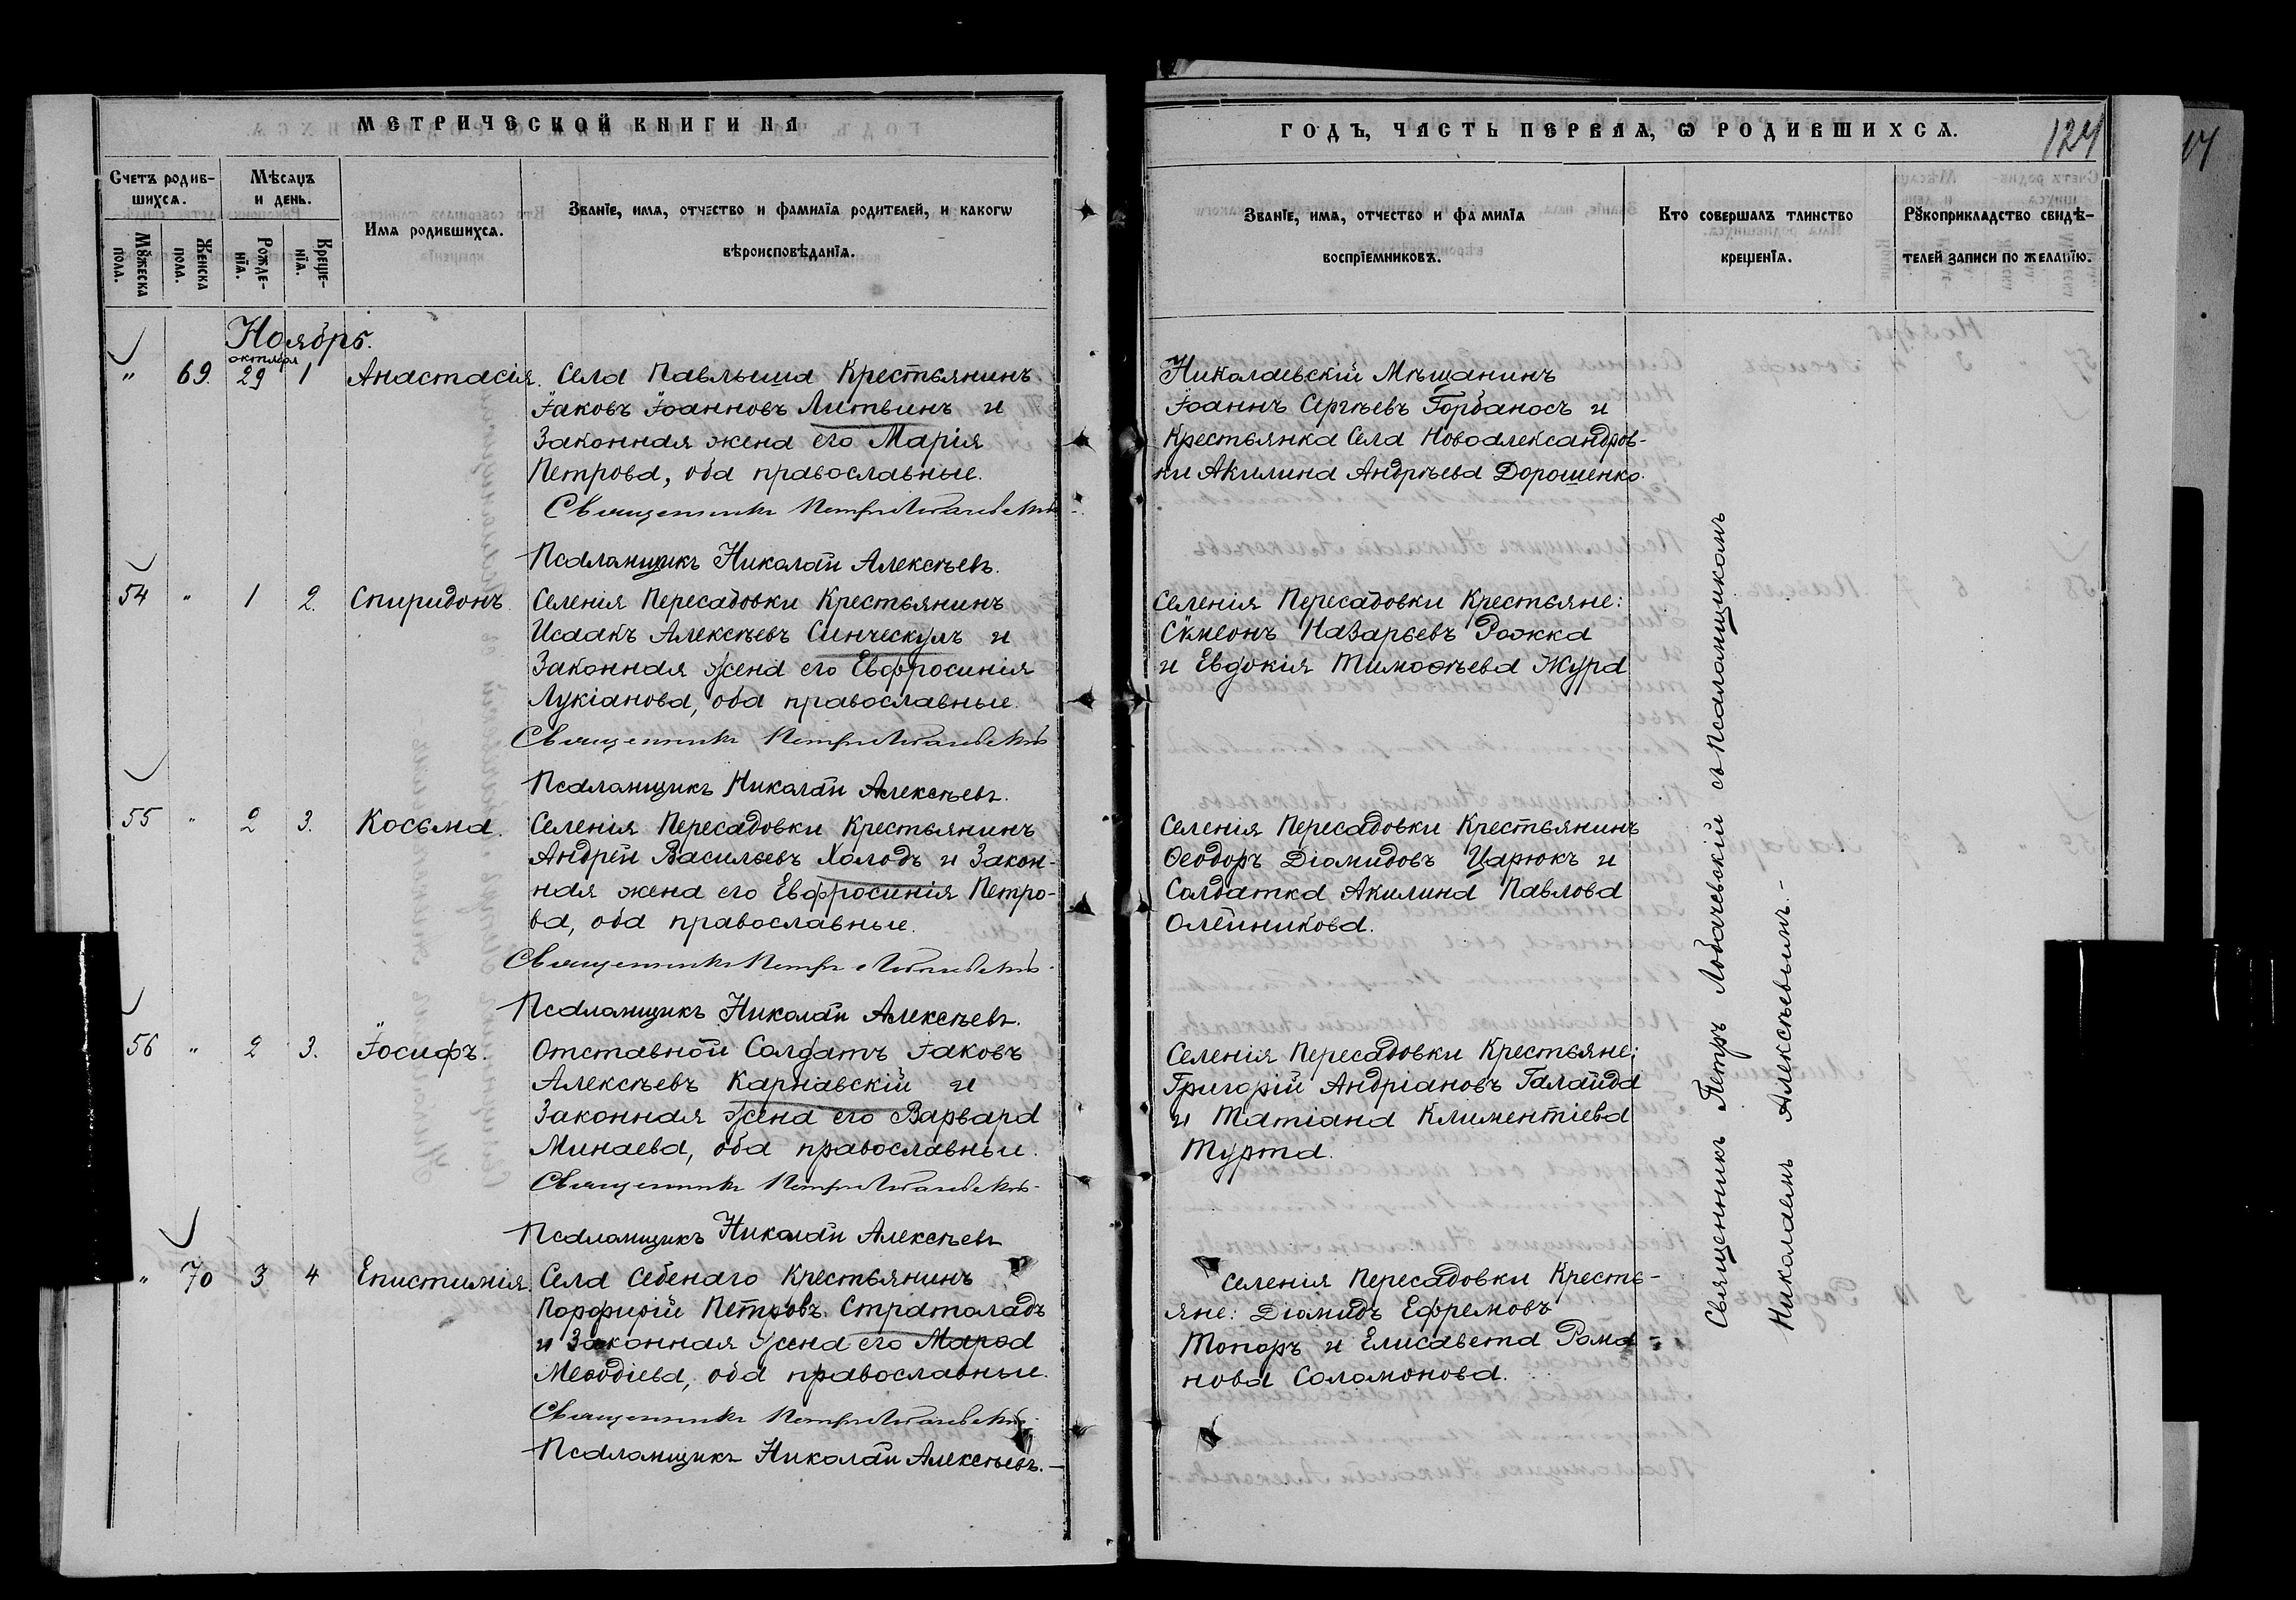 МЕТРИЧЕСКОЙ КНИГИ НА
ГОДЪ, ЧАСТЬ ПЕРВАЯ, Ѡ РОДИВШИХСѦ.
124
Счетъ родив-
шихсѧ.
Мѣсѧцъ
и день.
Имѧ родившихсѧ.
Званїе, имѧ, отчество и фамилїѧ родителей, и какогѡ
вѣроисповѣданїѧ.
Мꙋжеска
пола.
Женска
пола.
Рожде-
нїѧ.
Креще-
нїѧ.
Званїе, имѧ, отчество и фамилїѧ
воспрїемниковъ.
Кто совершалъ таинство
крещенїѧ.
Рꙋкоприкладство свидѣ-
телей записи по желанїю.
Ноябрь.
октября
" 69. 29 1 Анастасія. Села Павлыша Крестьянинъ
Іаковъ Іоанновъ Литвинъ и
Законная жена его Марія
Петрова, оба православные.
Священникъ Петръ Лобачевскій
Псаломщикъ Николай Алексѣевъ.
Николаевскій Мѣщанинъ
Іоаннъ Сергѣевъ Горбаносъ и
Крестьянка Села Новоалександров-
ки Акилина Андрѣева Дорошенко.
54 " 1 2. Спиридонъ. Селенія Пересадовки Крестьянинъ
Исаакъ Алексѣевъ Синческулъ и
Законная жена его Евфросинія
Лукіанова, оба православные.
Священникъ Петръ Лобачевскій
Псаломщикъ Николай Алексѣевъ.
Селенія Пересадовки Крестьяне:
Сѵмеонъ Назарьевъ Рожка
и Евдокія Тимоѳѣева Жура
55 " 2 3. Косьма. Селенія Пересадовки Крестьянинъ
Андрей Васильевъ Холодъ и Закон-
ная жена его Евфросинія Петро-
ва, оба православные.
Священникъ Петръ Лобачевскій.
Псаломщикъ Николай Алексѣевъ.
Селенія Пересадовки Крестьянинъ
Ѳеодоръ Діамидовъ Царюкъ и
Солдатка Акилина Павлова
Олейникова.
56 " 2 3. Іосифъ. Отставной Солдатъ Іаковъ
Алексѣевъ Карнавскій и
Законная жена его Варвара
Минаева, оба православные.
Священникъ Петръ Лобачевскій.
Псаломщикъ Николай Алексѣевъ
Селенія Пересадовки Крестьяне:
Григорій Андріановъ Галайда
и Татіана Климентіева
Турта.
" 70 3 4 Епистимія. Села Себенаго Крестьянинъ
Порфирій Петровъ Стратоладъ
и Законная жена его Марѳа
Меѳодіева, оба православные.
Священникъ Петръ Лобачевскій.
Псаломщикъ Николай Алексѣевъ.
Селенія Пересадовки Кресть-
яне: Діамидъ Ефремовъ
Топоръ и Елисавета Рома-
нова Соломонова.
Священникъ Петръ Лобачевскій съ псаломщикомъ
Николаемъ Алексѣевымъ.